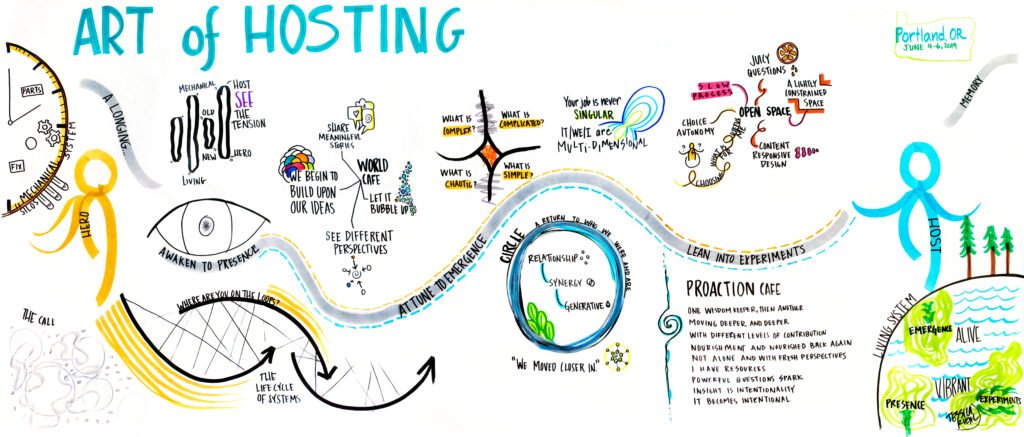 ART of HOSTING
Portland, OR
JUNE 4-6, 2019
PARTS
FIX
MECHANICAL
SYSTEM
SILOS
HERO
THE CALL
A LONGING
MECHANICAL
HOST
SEE
THE
TENSION
OLD
NEW
HERO
LIVING
AWAKEN TO PRESENCE
WHERE ARE YOU ON THE LOOPS?
THE
LIFE CYCLE
OF SYSTEMS
SHARE
MEANINGFUL
STORIES
WORLD
CAFE
WE BEGIN TO
BUILD UPON
OUR IDEAS
LET IT
BUBBLE UP
SEE DIFFERENT
PERSPECTIVES
ATTUNE TO EMERGENCE
WHAT IS
COMPLEX?
WHAT IS
COMPLICATED?
WHAT IS
CHAOTIC?
WHAT IS
SIMPLE?
Your job is never
SINGULAR
IT/WE/I are
MULTI-DIMENSIONAL
CIRCLE
A RETURN TO WHO WE WERE AND ARE
RELATIONSHIP
SYNERGY
GENERATIVE
"WE MOVED CLOSER IN."
JUICY
QUESTIONS
SLOW
PROCESS
A LIGHTLY
CONSTRAINED
SPACE
OPEN SPACE
CHOICE
AUTONOMY
CONTENT
RESPONSIVE
DESIGN
LEAN INTO EXPERIMENTS
PROACTION CAFE
ONE WISDOM KEEPER, THEN ANOTHER
MOVING DEEPER AND DEEPER
WITH DIFFERENT LEVELS OF CONTRIBUTION
NOURISHMENT AND NOURISHED BACK AGAIN
NOT ALONE AND WITH FRESH PERSPECTIVES
I HAVE RESOURCES
POWERFUL QUESTIONS SPARK
INSIGHT IS INTENTIONALITY
IT BECOMES INTENTIONAL
MEMORY
HOST
LIVING SYSTEM
EMERGENCE
ALIVE
VIBRANT
PRESENCE
EXPERIMENTS
JESSICA